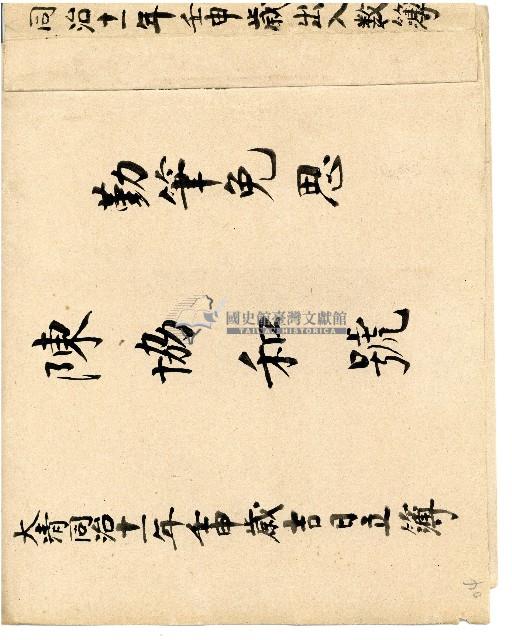 同治十一年壬申歲出入数簿
勤筆免思
國史館臺灣文獻館
TAIWAN HISTORICA
陳協和號
大清同治十一年壬申歲吉日立簿